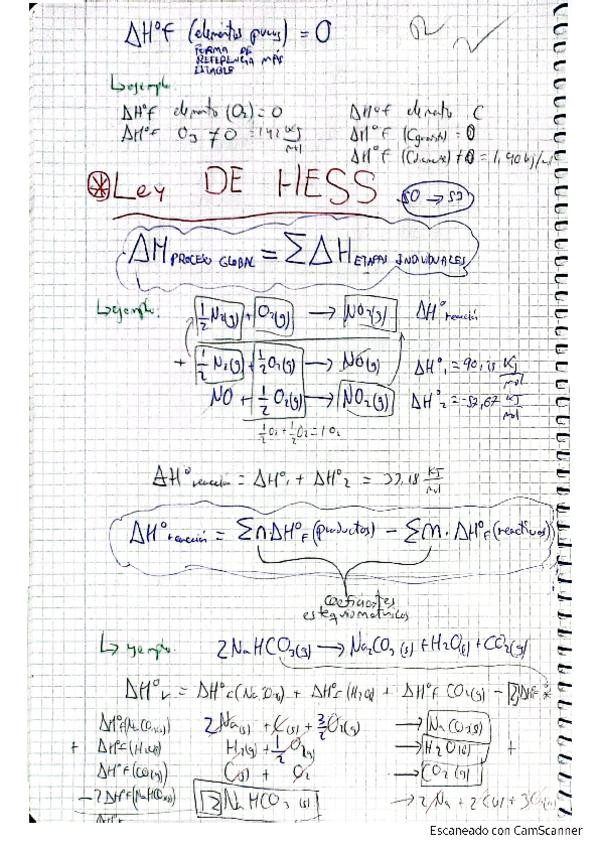 ΔH°F (elementos puros) = 0
FORMA DE
REFERENCIA MÁS
ESTABLE
↳ ejemplo
ΔH°F elemento (O₂) = 0
ΔH°F elemento C
ΔH°F O₃ ≠ 0 = 142 KJ/mol
ΔH°F (Cgrafito) = 0
ΔH°F (Cdiamante) ≠ 0 = 1,90 kJ/mol
Ley DE HESS
50 → 53
ΔH PROCESO GLOBAL = ΣΔH ETAPAS INDIVIDUALES
↳ ejemplo:
½ N₂(g) + O₂(g) → NO₂(g) ΔH° reacción
+ ½ N₂(g) + ½ O₂(g) → NO(g) ΔH°₁ = 90,25 KJ/mol
NO + ½ O₂(g) → NO₂(g) ΔH°₂ = -57,07 KJ/mol
½O₂ + ½O₂ = 1 O₂
ΔH° reacción = ΔH°₁ + ΔH°₂ = 33,18 KJ/mol
ΔH° reacción = Σn.ΔH°F (productos) − Σm.ΔH°F (reactivos)
coeficientes
estequiométricos
↳ ejemplo: 2NaHCO₃(s) → Na₂CO₃(s) + H₂O(l) + CO₂(g)
ΔH°r = ΔH°F + ΔH°F (H₂O) + ΔH°F CO₂(g) − 2ΔH°F *
2Na(s) + C(s) + 3/2 O₂(g) →
+ ΔH°F (H₂O(l)) H₂(g) + ½ O₂(g) → H₂O(l) +
ΔH°F (CO₂(g)) C(s) + O₂ → CO₂(g)
− 2ΔH°F (NaHCO₃(s)) 2 NaHCO₃(s) → 2Na + 2C(s) +